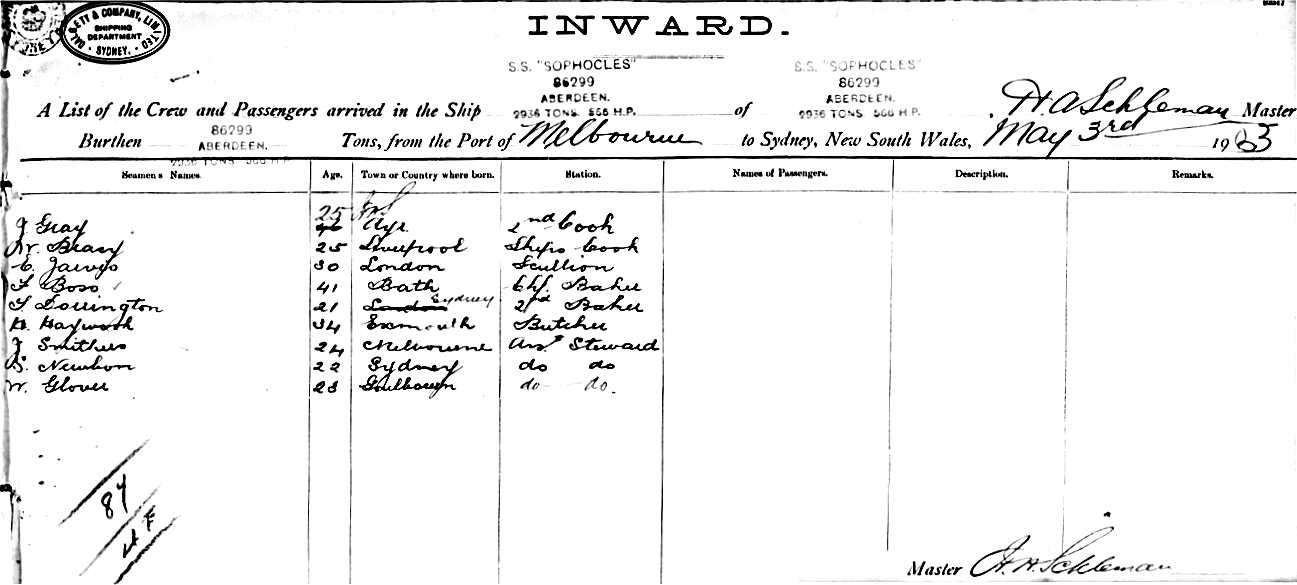 DALGETY & COMPANY, LIMITED
SHIPPING
DEPARTMENT
SYDNEY.
INWARD.
S.S. "SOPHOCLES" S.S. "SOPHOCLES"
86299 86299
ABERDEEN. ABERDEEN.
2936 TONS. 566 H.P. 2936 TONS. 566 H.P.
A List of the Crew and Passengers arrived in the Ship of Master
Burthen 86299 ABERDEEN. 2936 TONS 566 H.P. Tons, from the Port of Melbourne to Sydney, New South Wales, May 3rd 19
Seamen's Names. Age. Town or Country where born. Station. Names of Passengers. Description. Remarks.
25
J Gray Ayr 2nd Cook
25 Liverpool Ships Cook
C. Jarvis 30 London Scullion
41 Bath Chf. Baker
Dorrington 21 London Sydney 2nd Baker
H. Haywood 34 Exmouth Butcher
J Smithers 24 Melbourne Asst Steward
Newbon 22 Sydney do do
W. Glover 23 Goulburn do do.
84
Master